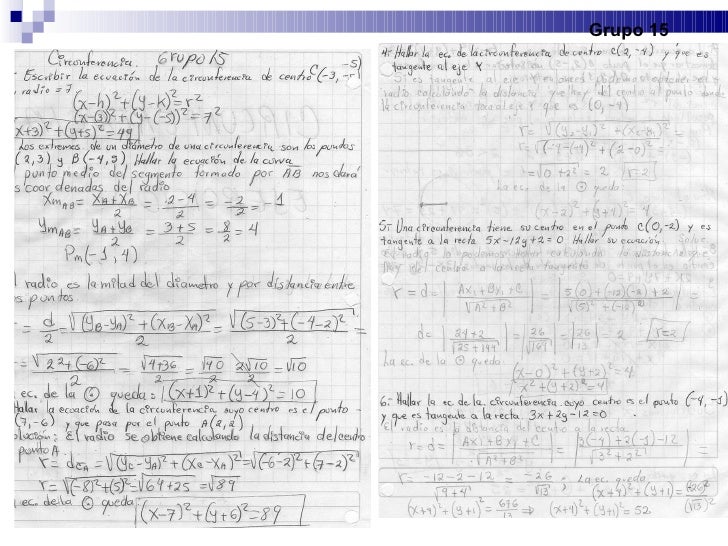 Grupo 15
Circunferencia. Grupo 15
Escribir la ecuación de la circunferencia de centro C(-3, -5)
radio = 7
(x-h)²+(y-k)²=r²
(x-(3))²+(y-(-5))²=7²
x+3)²+(y+5)²=49
Los extremos de un diámetro de una circunferencia son los puntos
(2,3) y B(-4,5) Hallar la ecuación de la curva
punto medio del segmento formado por AB nos dará
s coordenadas del radio
Xm_AB = X_A+X_B / 2 = 2-4 / 2 = -2 / 2 = -1
Ym_AB = Y_A+Y_B / 2 = 3+5 / 2 = 8 / 2 = 4
Pm(-1, 4)
l radio es la mitad del diametro y por distancia entre
s puntos
= d / 2 = √(Y_B-Y_A)²+(X_B-X_A)² / 2 = √(5-3)²+(-4-2)² / 2 =
= √2²+(-6)² / 2 = √4+36 / 2 = √40 / 2 = 2√10 / 2 = √10
ec. de la ⊙ queda: (x+1)²+(y-4)² = 10
Hallar la ecuación de la circunferencia cuyo centro es el punto
(7,-6) y que pasa por el punto A(2,2)
olución: El radio se obtiene calculando la distancia del centro
punto A:
r = d_CA = √(Y_C-Y_A)²+(X_C-X_A)² = √(-6-2)²+(7-2)²
r = √(-8)²+(5)² = √64+25 = √89
ec. de la ⊙ queda: (x-7)²+(y+6)²=89
4.- Hallar la ec. de la circunferencia de centro C(2,-4) y que es
tangente al eje Y.
Si es tangente al eje Y entonces podemos obtener el
radio calculando la distancia que hay del centro al punto donde
la circunferencia toca al eje Y que es (0,-4)
r = √(Y_2-Y_1)²+(X_2-X_1)² =
r = √(-4-(-4))²+(2-0)² =
r = √0+2² = 2 r=2
La ec. de la ⊙ queda:
(x-2)²+(y+4)² = 4
5.- Una circunferencia tiene su centro en el punto C(0,-2) y es
tangente a la recta 5x-12y+2=0 Hallar su ecuación
del centro a la recta tangente
r = d = | Ax₁+By₁+C / √A²+B² | = | 5(0)+(-12)(-2)+2 / √(5)²+(-12)² |
d = | 24+2 / √25+144 | = | 26 / √169 | = | 26 / 13 | = 2 r=2
La ec. de la ⊙ queda:
(x-0)²+(y+2)²=4
x²+(y+2)²=4
6.- Hallar la ec de la circunferencia cuyo centro es el punto (-4,-1)
y que es tangente a la recta 3x+2y-12=0.
El radio es la distancia del centro a la recta
r = d = | Ax₁+By₁+C / √A²+B² | = | 3(-4)+2(-1)-12 / √3²+2² |
r = -12-2-12 / √9+4 = -26 / √13 ; La ec. queda
(x+4)²+(y+1)² = (-26)² / (√13)²
(x+4)²+(y+1)² = 676 / 13 ⇒ (x+4)²+(y+1)² = 52